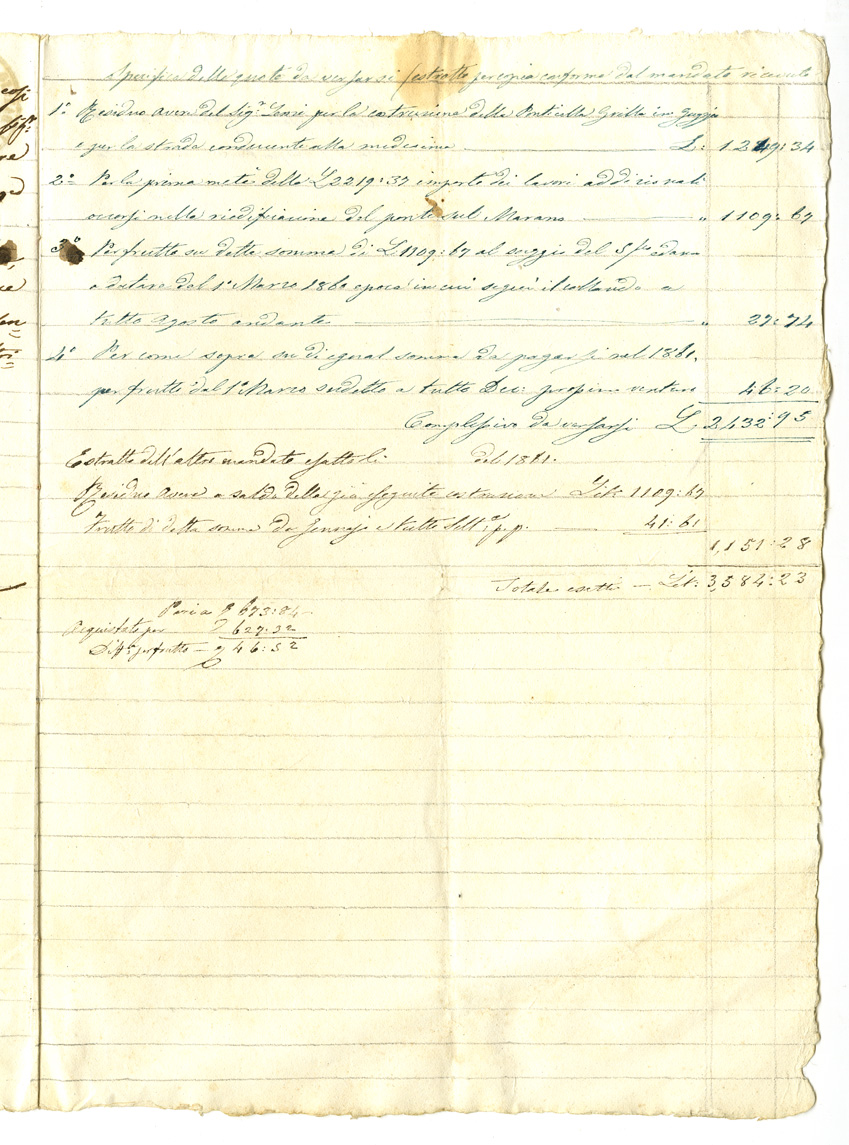 Specifica delle quote da versarsi (estratto per copia conforme dal mandato ricevuto
1° Residuo avere del Sig.r per la costruzione della Ponticella Gritta in
e per la strada conducente alla medesima L: 1249:34
2° Per la prima metà delle L 2219:37 importo dei lavori addizionali
occorsi nella riedificazione del ponte sul Marano " 1109:67
3° Per frutto su detta somma di L 1109:67 al saggio del 5 p%
a datare dal 1° Marzo 1860 epoca in cui seguì il collaudo a
tutto Agosto andante " 27:74
4° Per come sopra su di egual somma da pagarsi nel 1861.
per frutto dal 1° Marzo suddetto a tutto Dec: prossimo venturo 46:20
Complessivo da versarsi L 2,432:95
Estratto dell'altro mandato del 1861.
Residuo avere a saldo della già seguita costruzione Lit: 1109:67
Frutto di detta somma da Gennajo a tutto Sett:e p.p. 41:61
1,151:28
Totale esatto — Lit: 3,584:23
Paria 673:84
Acquistate per 627:32
per frutto — 46:52